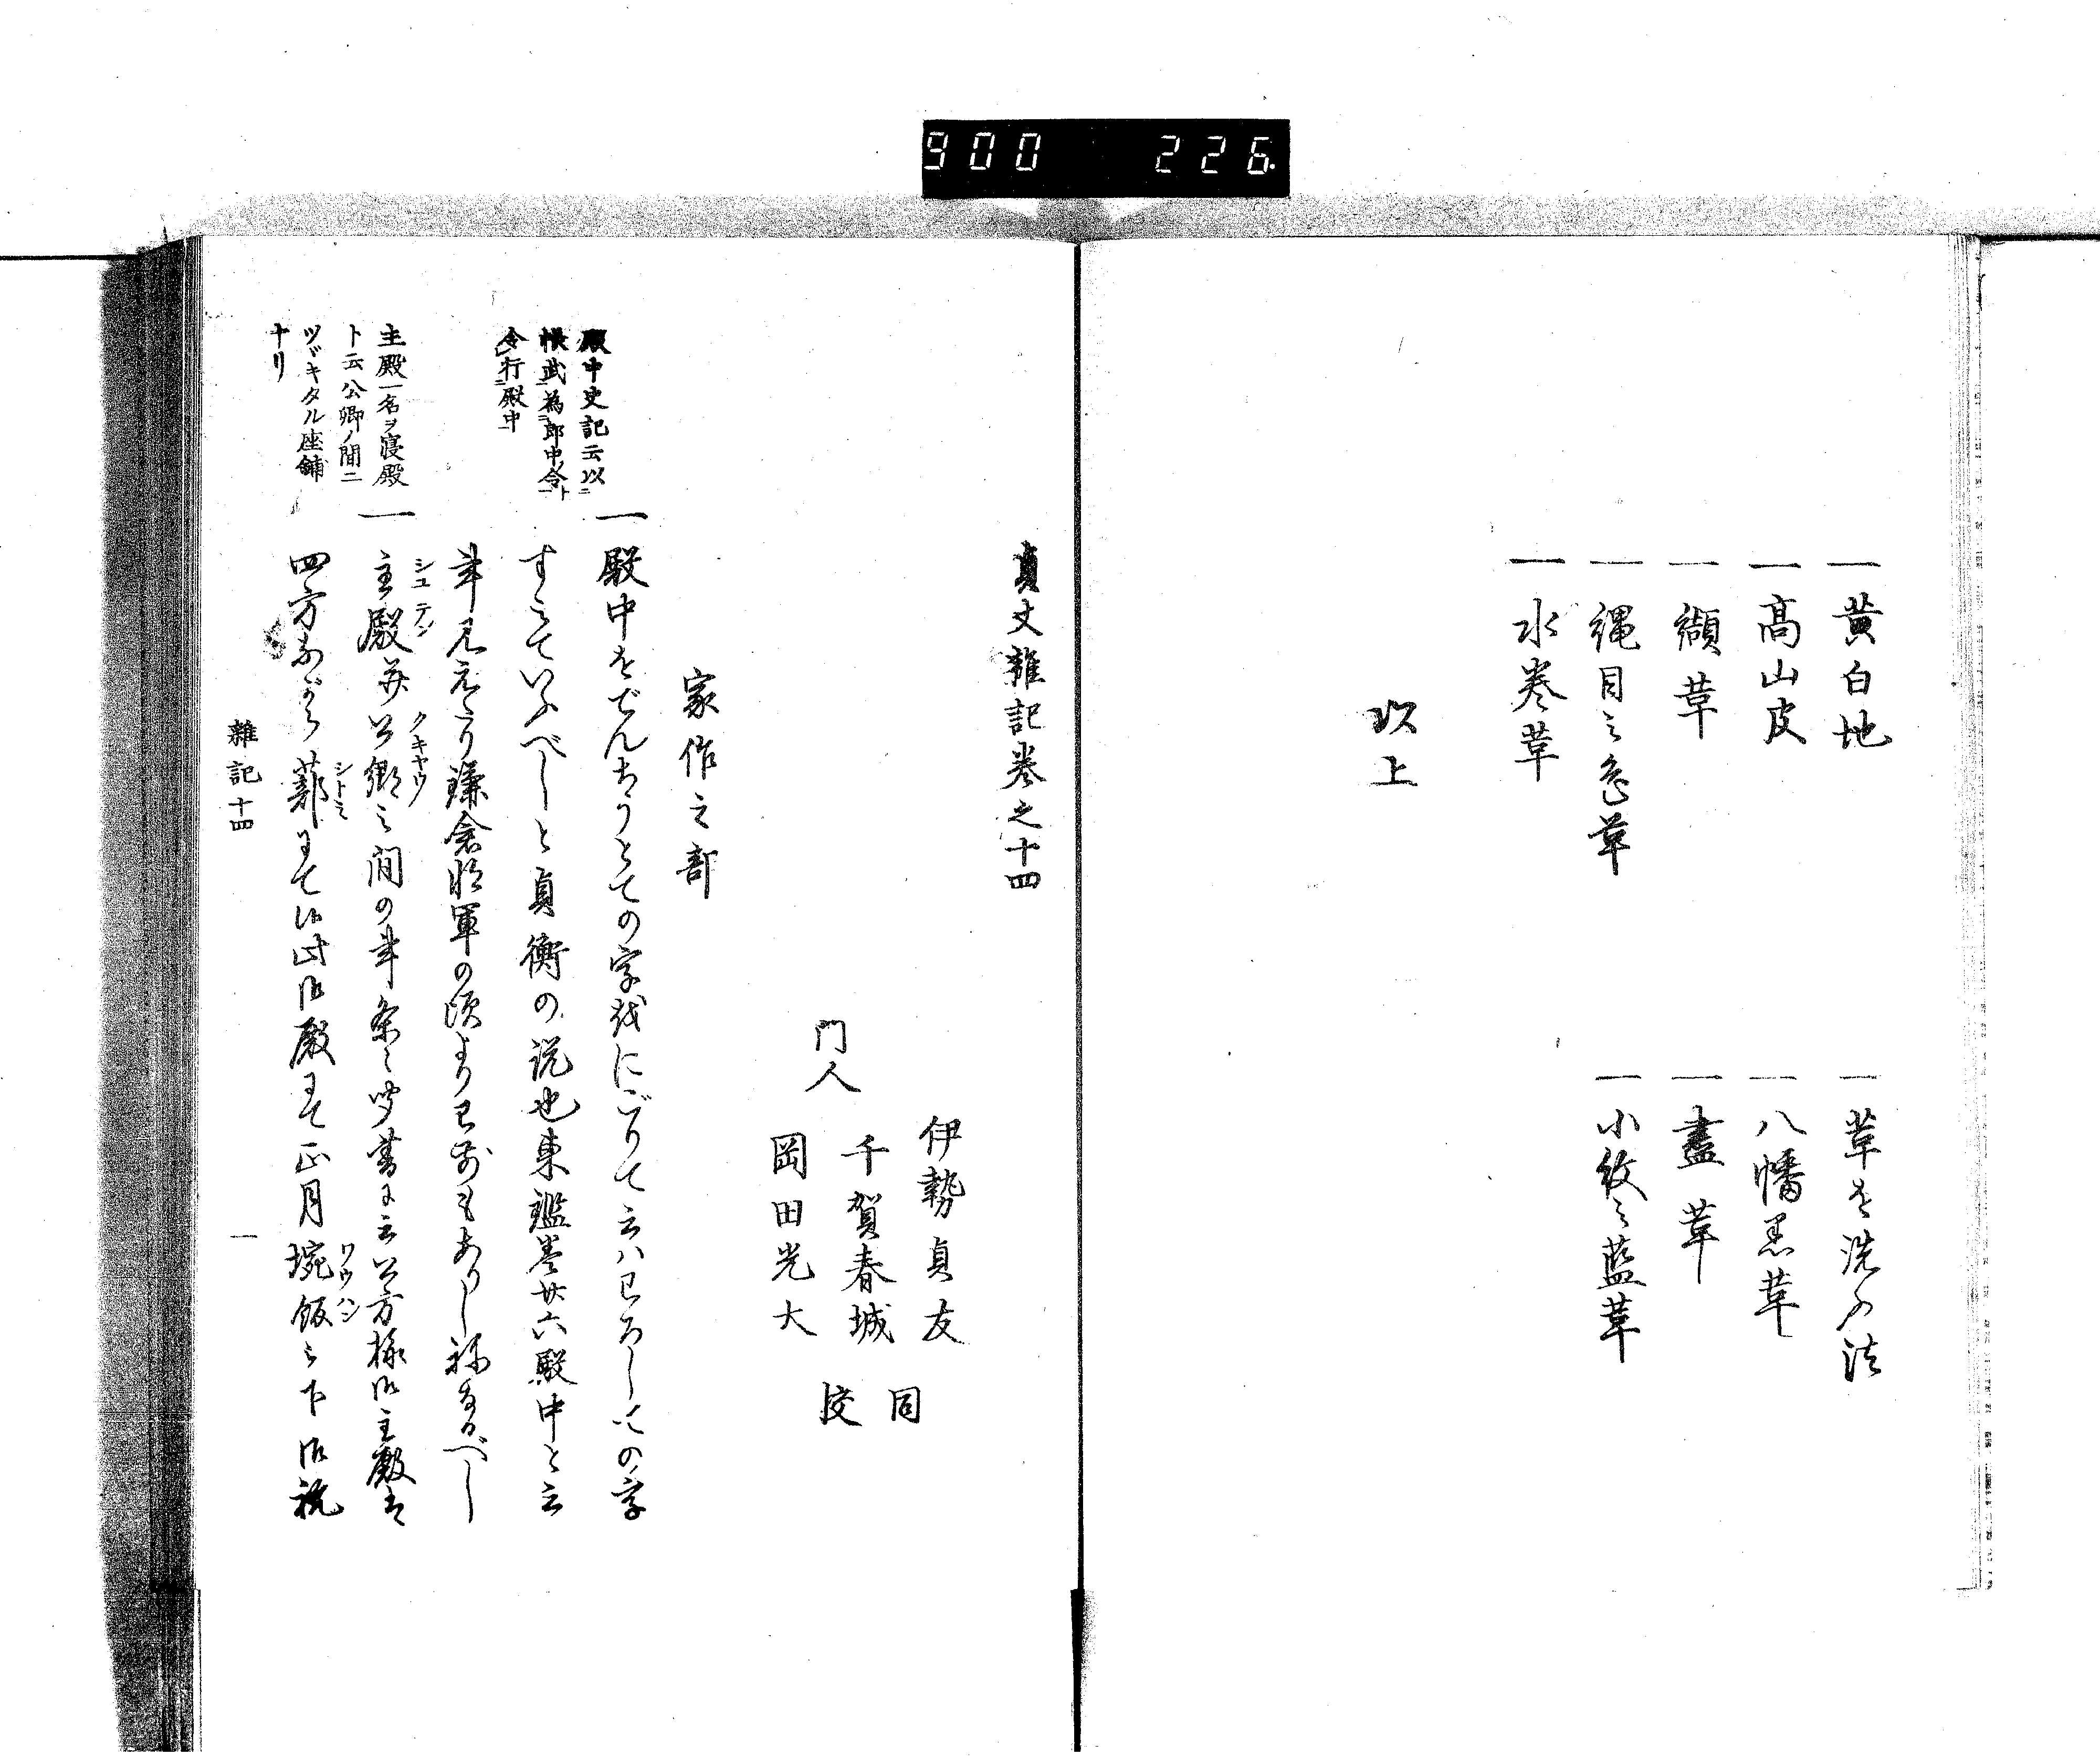 900 226
一黄白地
一高山皮
一纐革
一縄目之色革
一水巻革
一革を洗ふ法
一八幡黒革
一盡革
一小紋之藍革
以上
貞丈雜記巻之十四
伊勢貞友
門人 千賀春城
岡田光大
同
校
家作之部
殿中史記云以
張武為郎中令
令行殿中
一殿中をでんちうとての字就にごりて云ハわろしての字
すミていふべしと貞衡の説也東鑑巻廿六殿中と云
事見えたり鎌倉将軍の頃より已前もありし称なるべし
主殿一名ヲ寝殿
ト云公卿ノ間ニ
ツヾキタル座鋪
ナリ
一主殿并公卿之間の事条々聞書ニ云公方様御主殿は
シユテン
クキヤウ
四方ながら蔀にて候此御殿にて正月埦飯之下御祝
シトミ
ワウハン
雜記十四
一